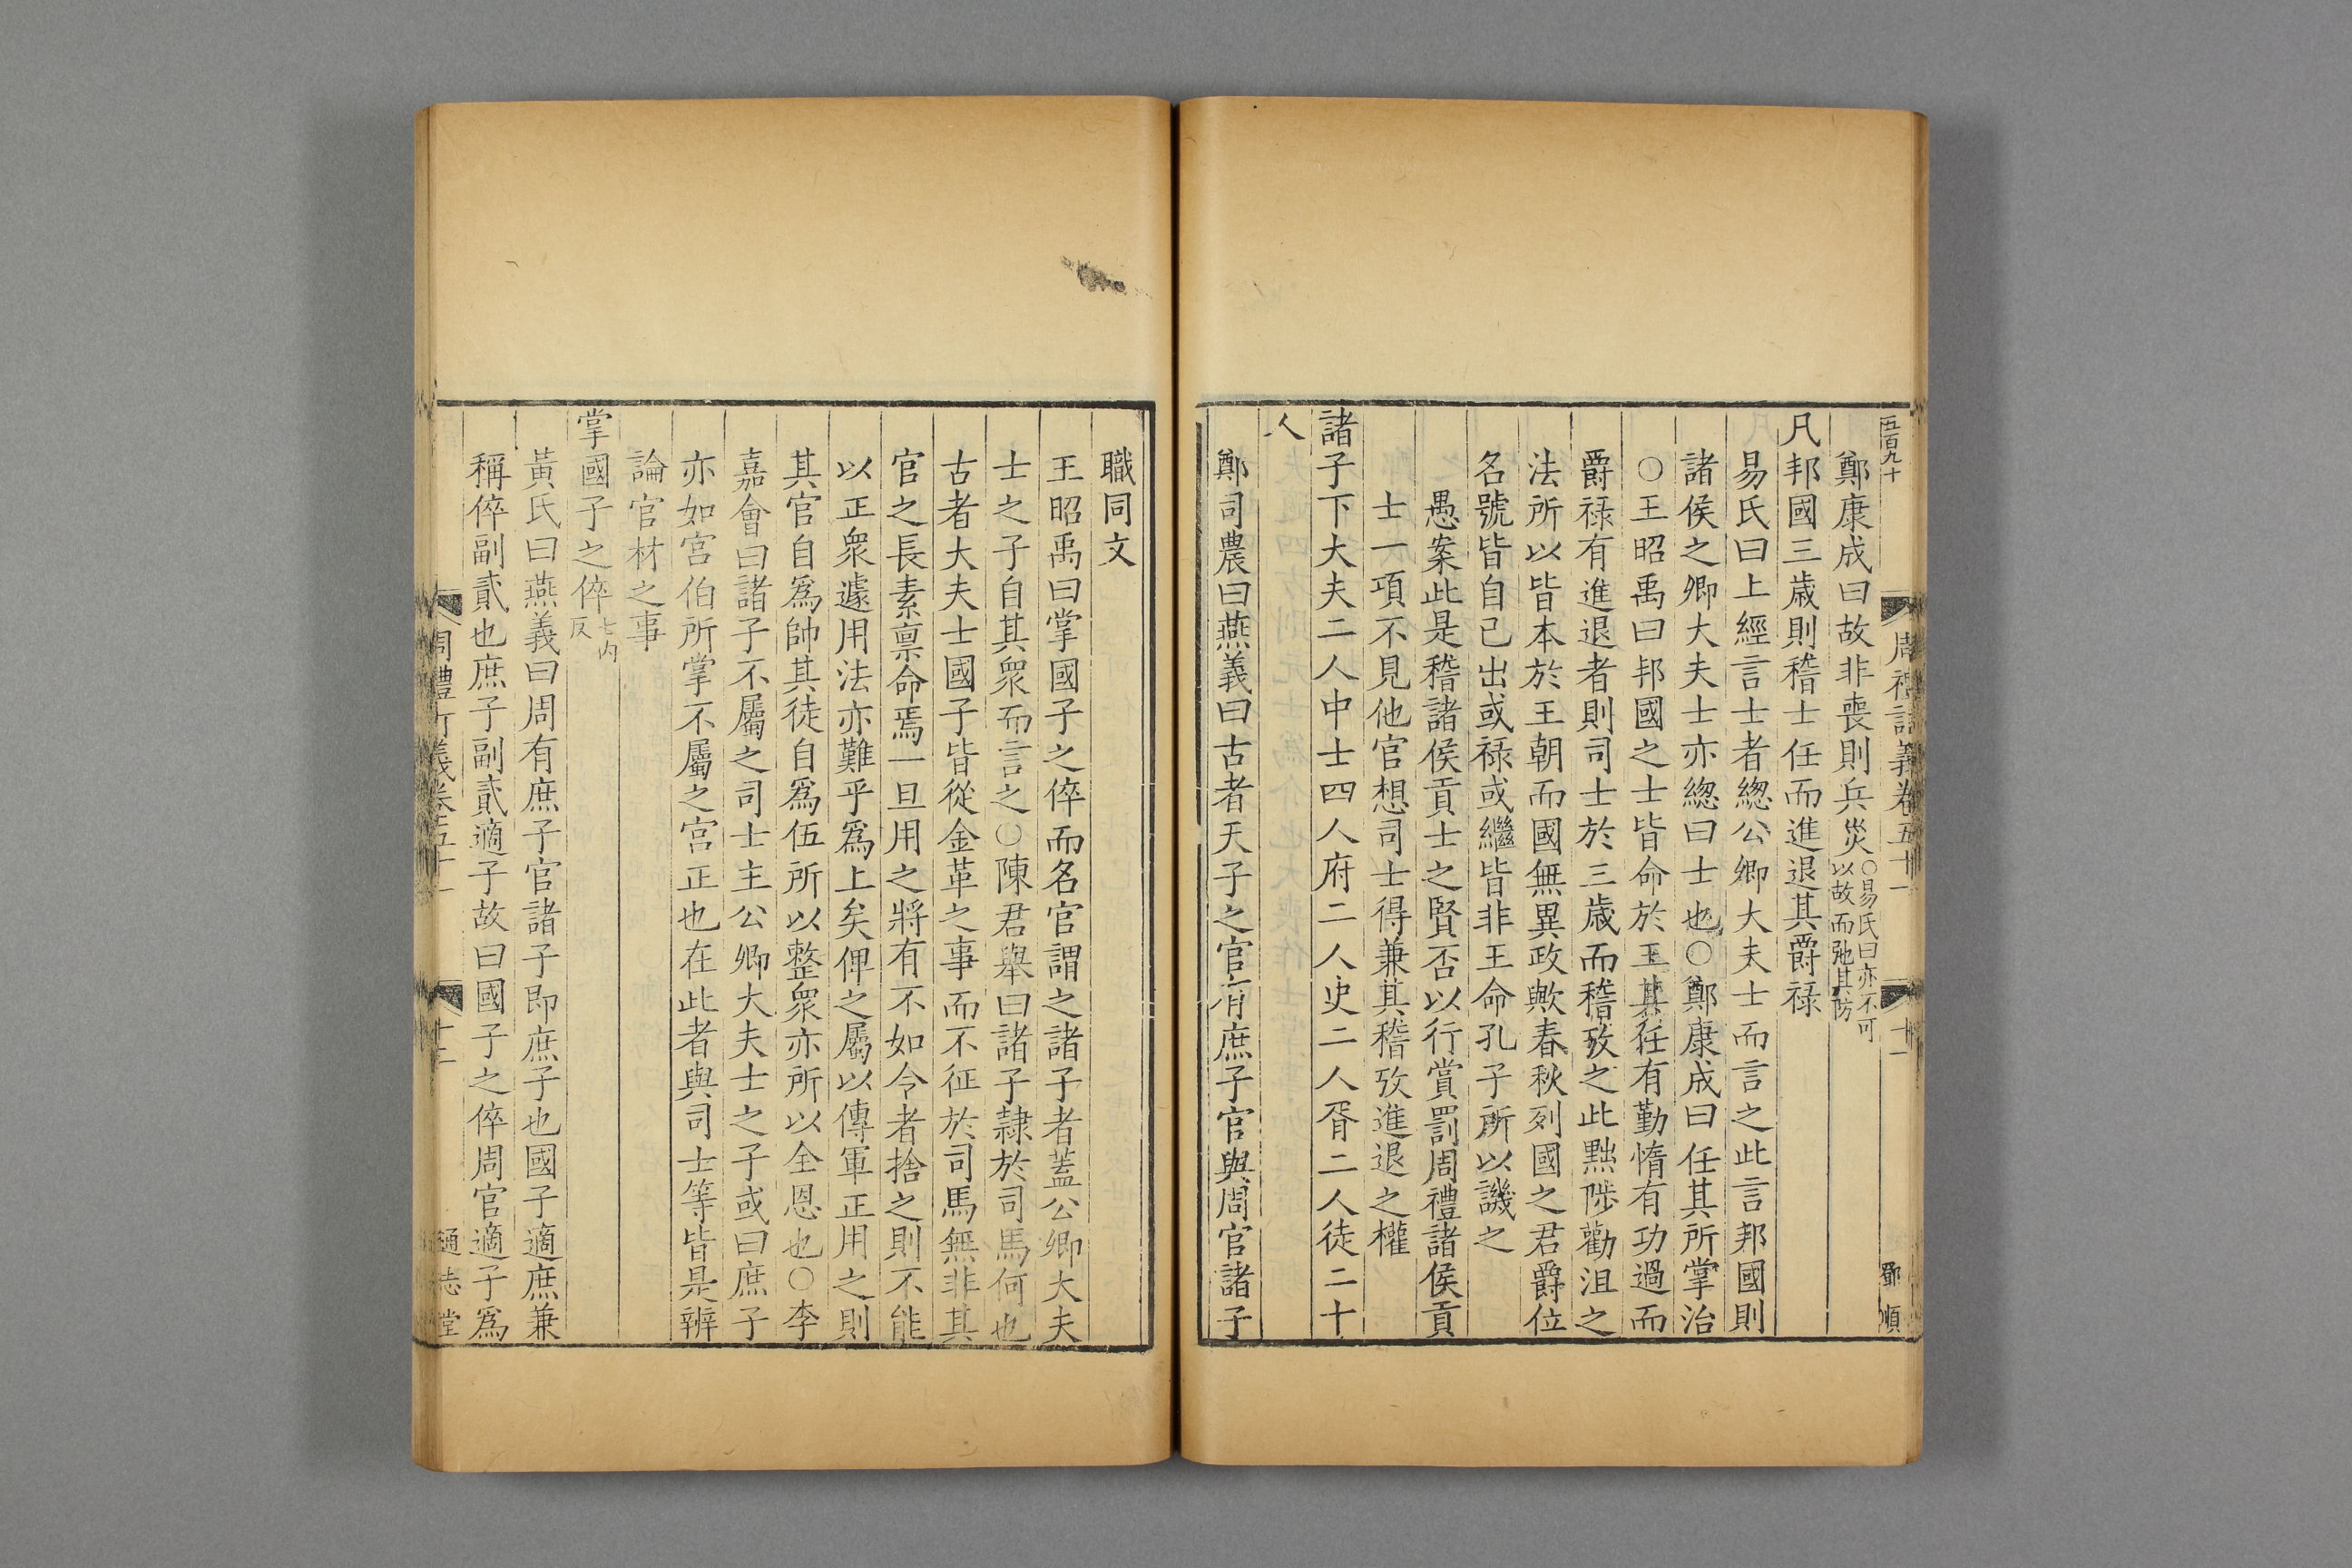 五百九十
周禮訂義卷五十一
十一
鄧順
鄭康成曰故非喪則兵災○易氏曰亦不可以故而弛其防
凡邦國三歲則稽士任而進退其爵祿
易氏曰上經言士者緫公卿大夫士而言之此言邦國則
諸侯之卿大夫士亦緫曰士也○鄭康成曰任其所掌治
○王昭禹曰邦國之士皆命於王其任有勤惰有功過而
爵祿有進退者則司士於三歲而稽攷之此黜陟勸沮之
法所以皆本於王朝而國無異政歟春秋列國之君爵位
名號皆自己出或祿或繼皆非王命孔子所以譏之
愚案此是稽諸侯貢士之賢否以行賞罰周禮諸侯貢
士一項不見他官想司士得兼其稽攷進退之權
諸子下大夫二人中士四人府二人史二人胥二人徒二十
人
鄭司農曰燕義曰古者天子之官有庶子官與周官諸子
職同文
王昭禹曰掌國子之倅而名官謂之諸子者蓋公卿大夫
士之子自其衆而言之○陳君舉曰諸子隷於司馬何也
古者大夫士國子皆從金革之事而不征於司馬無非其
官之長素禀命焉一旦用之將有不如令者捨之則不能
以正衆遽用法亦難乎爲上矣俾之屬以傳軍正用之則
其官自爲帥其徒自爲伍所以整衆亦所以全恩也○李
嘉會曰諸子不屬之司士主公卿大夫士之子或曰庶子
亦如宮伯所掌不屬之宮正也在此者與司士等皆是辨
論官材之事
掌國子之倅七内反
黃氏曰燕義曰周有庶子官諸子即庶子也國子適庶兼
稱倅副貳也庶子副貳適子故曰國子之倅周官適子爲
周禮訂義卷五十一
十二
通志堂